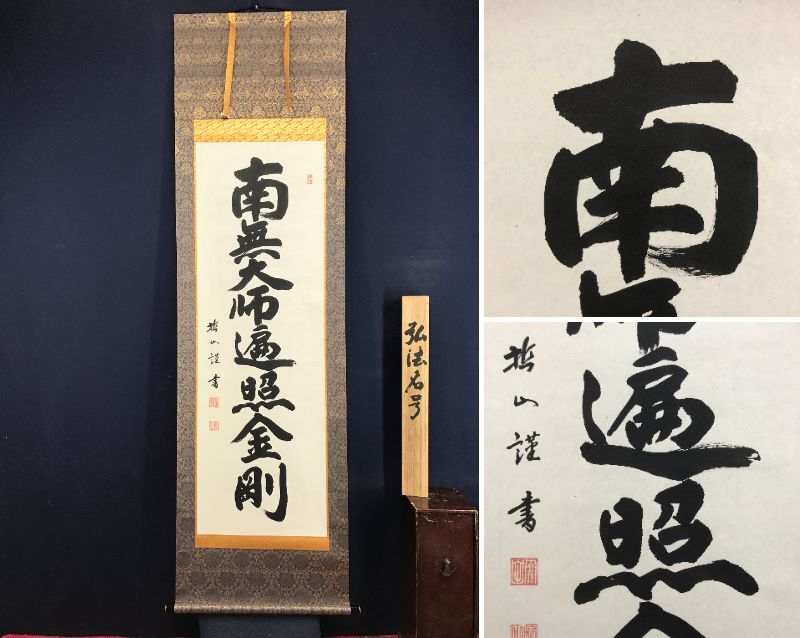 南無大師遍照金剛
哲山謹書
弘法名号
南無
師遍照金
哲山謹書